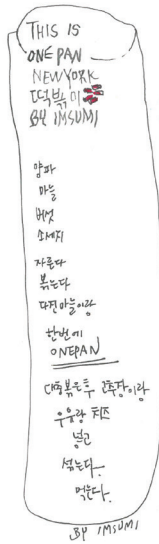 THIS IS
ONE PAN
NEWYORK
떡볶이
BY IMSUMI
양파
마늘
버섯
소세지
자른다
볶는다
다진마늘이랑
한번에
ONEPAN
대충볶은후 고추장이랑
우유랑 치즈
넣고
섞는다.
먹는다.
BY IMSUMI